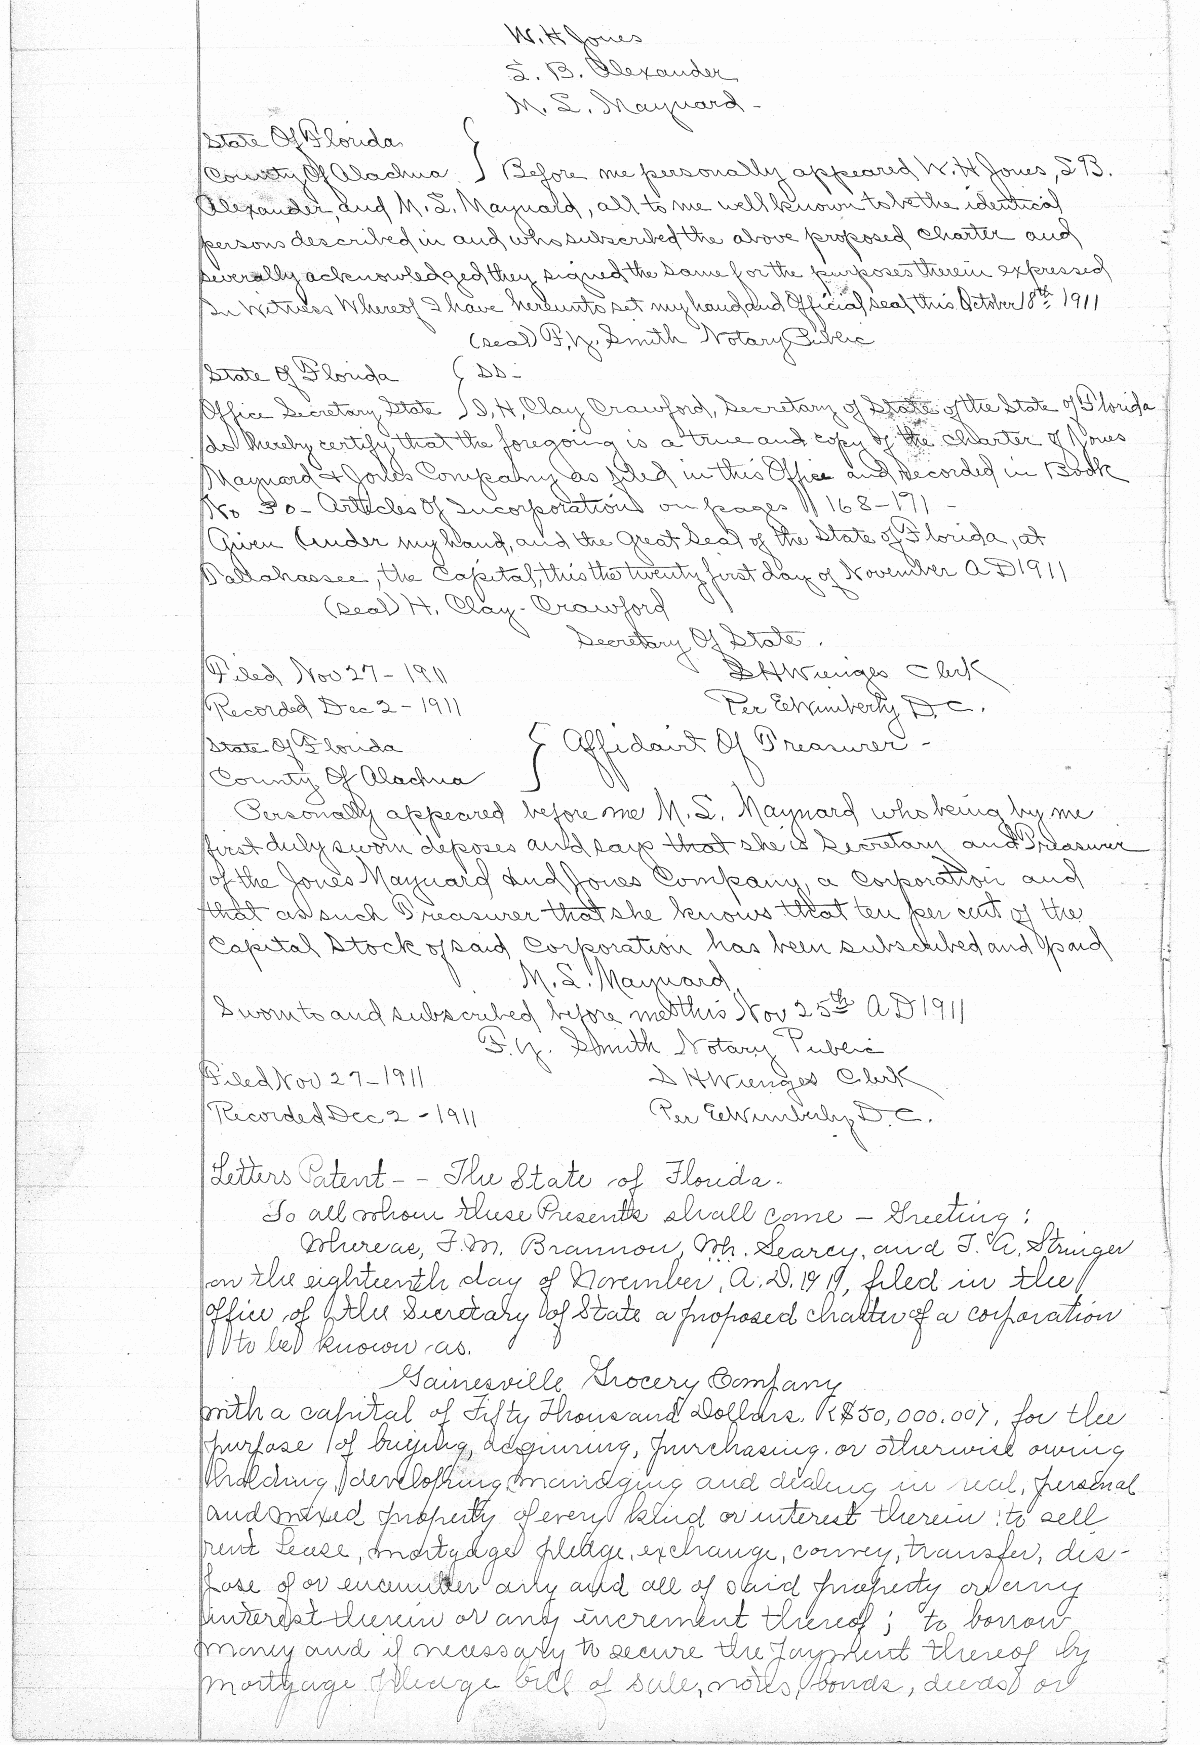 W. H Jones
S. B. Alexander
M. S. Maynard -
State Of Florida
County Of Alachua } Before me personally appeared W. H Jones, S B.
Alexander and M. S. Maynard, all to me well known to be the identical
persons described in and who subscribed the above proposed charter and
severally acknowledged they signed the same for the purposes therein expressed
In Witness Whereof I have hereunto set my hand and Official seal this October 18th 1911
(seal) F. Y. Smith Notary Public
State Of Florida { SS-
Office Secretary State } I, H, Clay Crawford, Secretary of State of the State of Florida
do hereby certify that the foregoing is a true and copy of the Charter of Jones
Maynard & Jones Company as filed in this Office and recorded in Book
No 30 - Articles Of Incorporations on pages 168-171 -
Given Under my hand, and the Great Seal of the State of Florida, at
Tallahassee, the Capital, this the twenty first day of November A D 1911
(seal) H. Clay - Crawford
Secretary Of State.
Filed Nov 27 - 1911 S H Wienges Clerk
Recorded Dec 2 - 1911 Per E Wimberly D. C.
State Of Florida } Affidavit Of Treasurer -
County Of Alachua
Personally appeared before me M. S. Maynard who being by me
first duly sworn deposes and says that she is Secretary and Treasurer
of the Jones Maynard And Jones Company, a corporation and
that as such Treasurer that she knows that ten per cent of the
Capital Stock of said Corporation has been subscribed and paid
M. S. Maynard
Sworn to and subscribed before me this Nov 25th A D 1911
F. Y. Smith Notary Public
Filed Nov 27 - 1911 S H Wienges Clerk
Recorded Dec 2 - 1911 Per E Wimberly D. C.
Letters Patent - - The State of Florida.
To all whom these Presents shall come - Greeting:
Whereas, F. M. Brannon, Wm. Searcy, and T. A. Stringer
on the eighteenth day of November, A. D. 1911, filed in the
office of the Secretary of State a proposed charter of a corporation
to be known as.
Gainesville Grocery Company
with a capital of Fifty Thousand Dollars, ($50,000.00), for the
purpose of buying, acquiring, purchasing or otherwise owing
holding, developing, managing and dealing in real, personal
and mixed property of every kind or interest therein: to sell
rent Lease, mortgage pledge, exchange, convey, transfer, dis-
pose of or encumber any and all of said property or any
interest therein or any increment thereof; to borrow
money and if necessary to secure the payment thereof by
mortgage pledge bill of sale, notes, bonds, deeds or